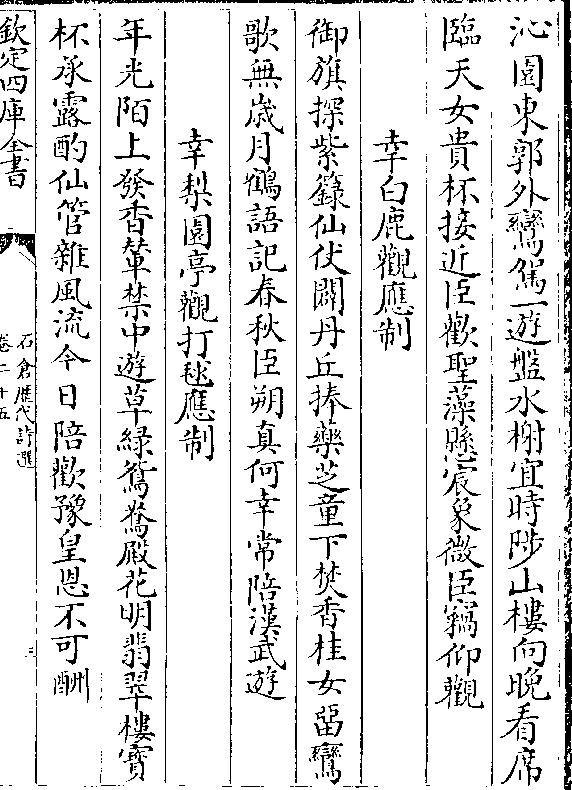 沁園東郭外鸞駕一遊盤水榭宜時陟山樓向晚看席
臨天女貴杯接近臣歡聖藻懸宸象微臣竊仰觀
幸白鹿觀應制
御旗探紫籙仙仗闢丹丘捧藥芝童下焚香桂女留鸞
歌無歲月鶴語記春秋臣朔真何幸常陪漢武遊
幸梨園亭觀打毬應制
年光陌上發香輦禁中遊草綠鴛鴦殿花明翡翠樓寶
杯承露酌仙管雜風流今日陪歡豫皇恩不可酬
欽定四庫全書
石倉歷代詩選
卷二十五
三